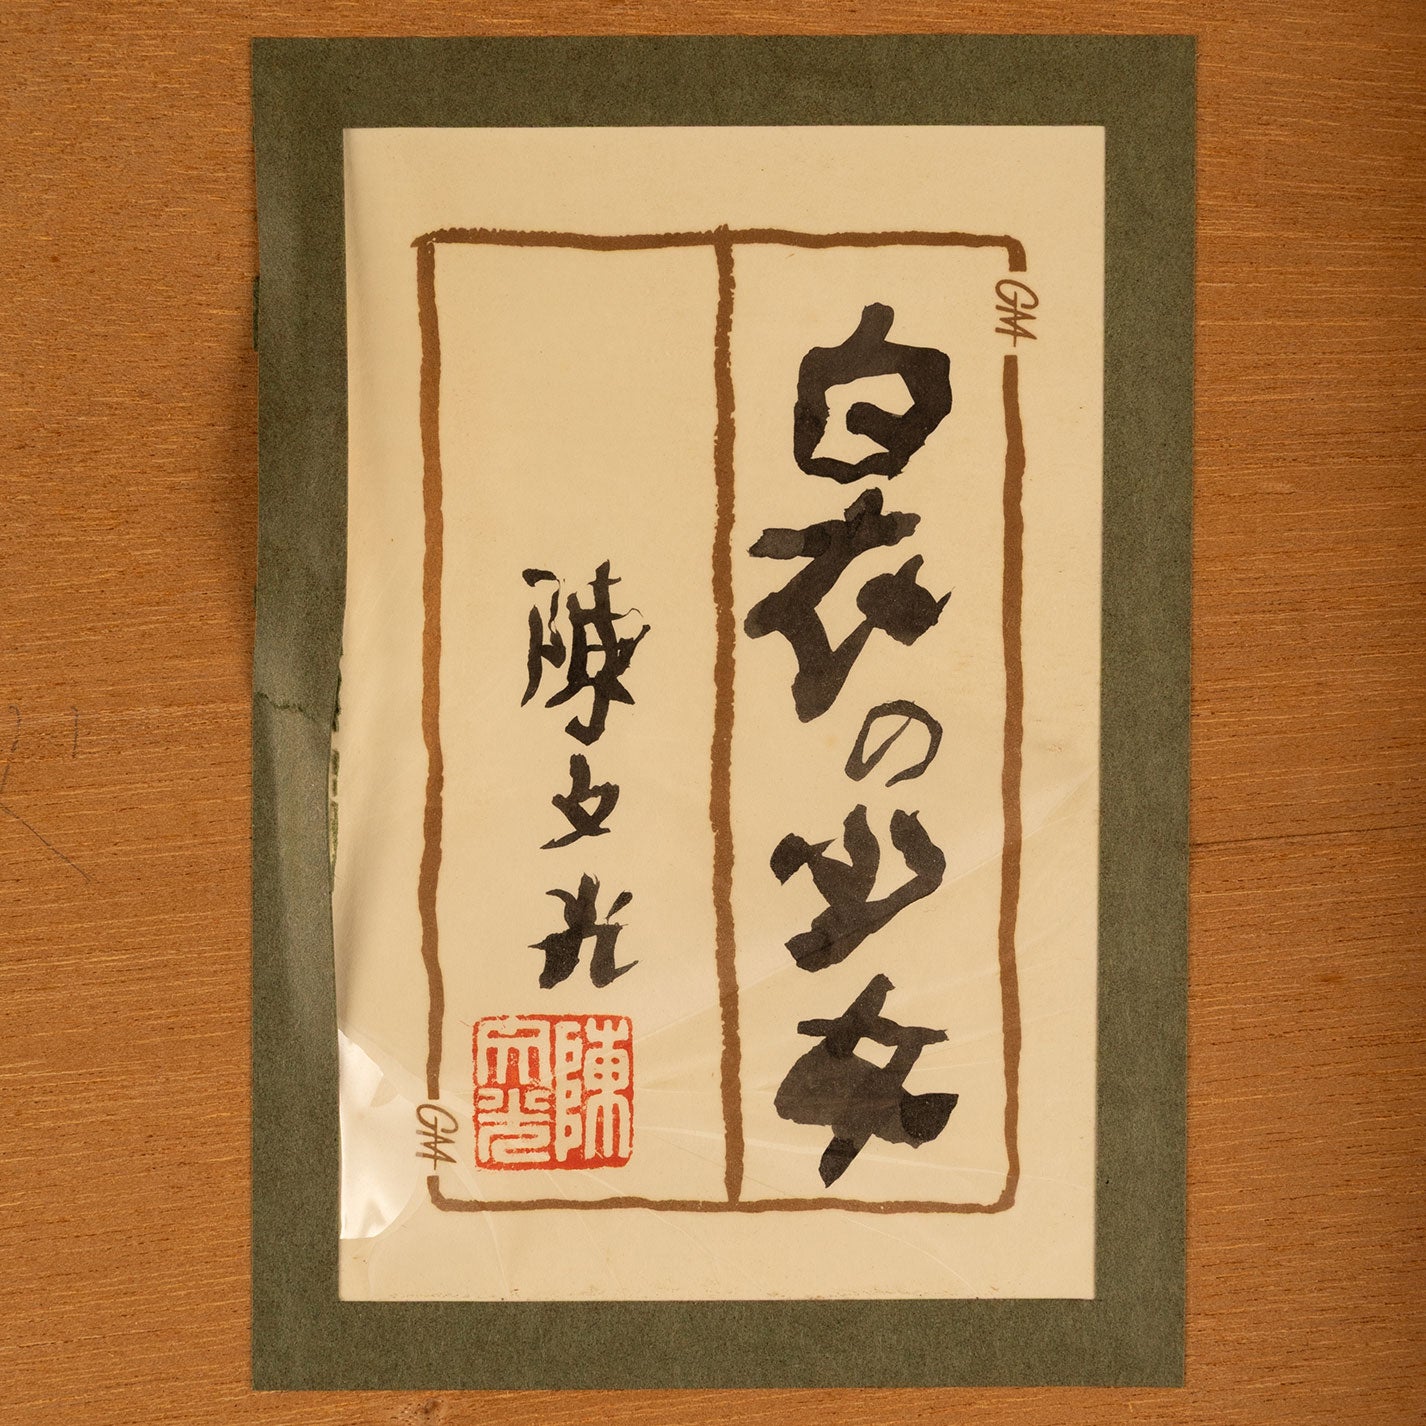 GM
白衣の少女
陳文光
陳
文光
GM